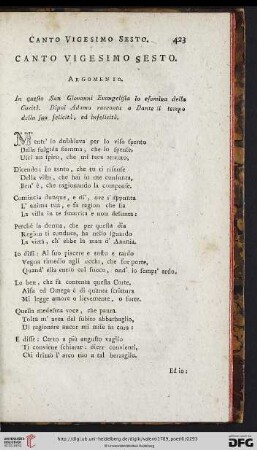 CANTO VIGESIMO SESTO. 423
CANTO VIGESIMO SESTO.
ARGOMENTO.
In questo San Giovanni Evangelista lo esamina della
Carità. Dipoi Adamo racconta a Dante il tempo
della sua felicità, ed infelicità.
Mentr' io dubbiava per lo viso spento
Della fulgida fiamma, che lo spense
Uscì un spiro, che mi fece attento,
Dicendo: In tanto, che tu ti risense
Della vista, che hai in me consunta,
Ben' è, che ragionando la compense.
Comincia dunque, e dì, ove s'appunta
L' anima tua, e fa ragion che sia
La vista in te smarrita e non defunta:
Perchè la donna, che per questa dia
Region ti conduce, ha nello sguardo
La virtù, ch' ebbe la man d' Anania.
Io dissi: Al suo piacere e tosto e tardo
Vegna rimedio agli occhi, che fur porte,
Quand' ella entrò col fuoco, ond' io sempr' ardo.
Lo ben, che fa contenta questa Corte,
Alfa ed Omega è di quanta scrittura
Mi legge amore o lievemente, o forte.
Quella medesma voce, che paura
Tolta m' avea del subito abbarbaglio,
Di ragionare ancor mi mise in cura:
E disse: Certo a più angusto vaglio
Ti conviene schiarar: dicer convienti,
Chi drizzò l' arco tuo a tal berzaglio.
Ed io:
http://digi.ub.uni-heidelberg.de/diglit/
© Universitätsbibliothek Heidelberg
gefördert durch die
DFG